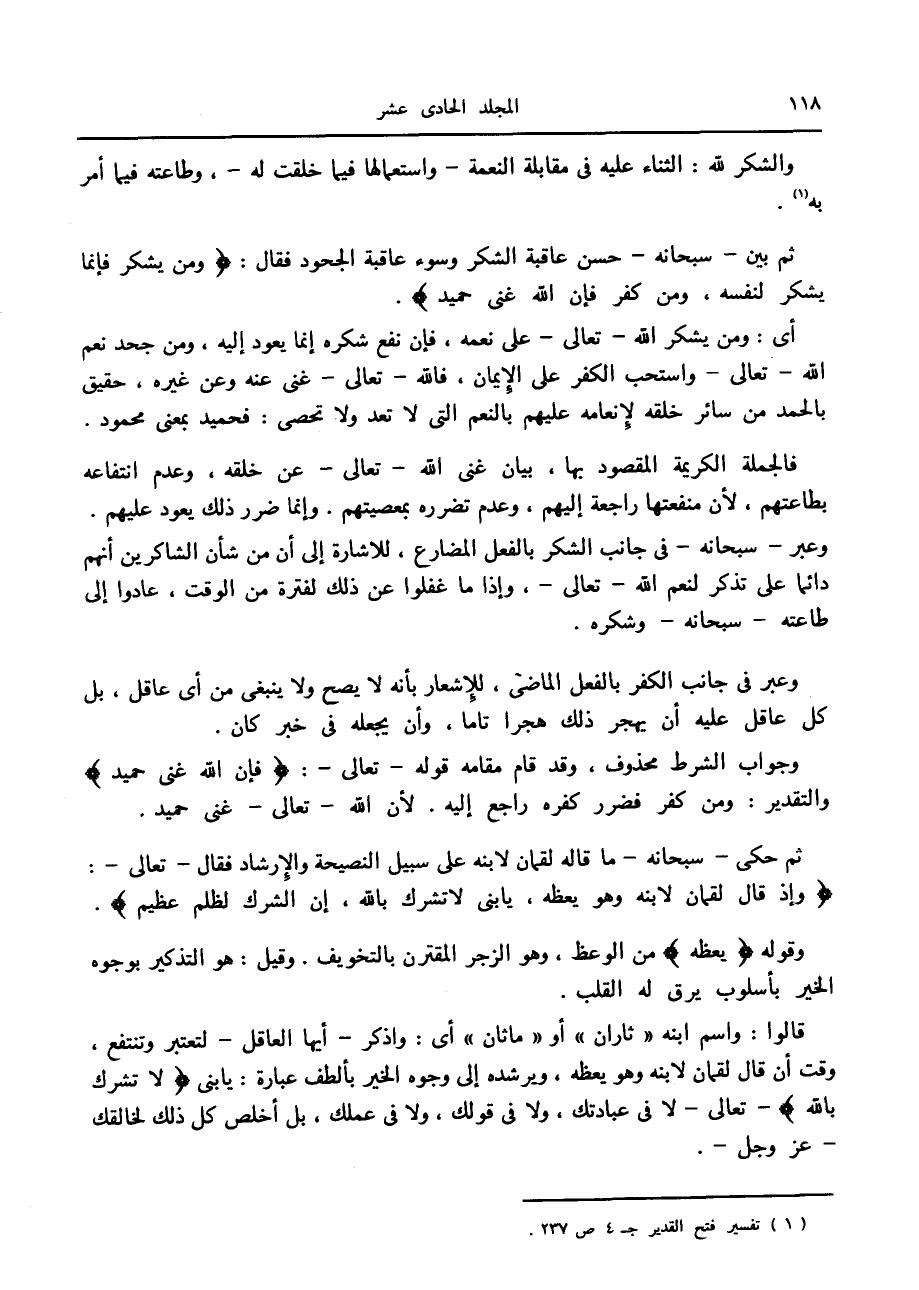 ١١٨
المجلد الحادى عشر
والشكر لله : الثناء عليه فى مقابلة النعمة – واستعمالها فيما خلقت له – ، وطاعته فيما أمر
به(١) .
ثم بين – سبحانه – حسن عاقبة الشكر وسوء عاقبة الجحود فقال : ﴿ ومن يشكر فإنما
يشكر لنفسه ، ومن كفر فإن الله غنى حميد ﴾ .
أى : ومن يشكر الله – تعالى – على نعمه ، فإن نفع شكره إنما يعود إليه ، ومن جحد نعم
الله – تعالى – واستحب الكفر على الإيمان ، فالله – تعالى – غنى عنه وعن غيره ، حقيق
بالحمد من سائر خلقه لإنعامه عليهم بالنعم التى لا تعد ولا تحصى : فحميد بمعنى محمود .
فالجملة الكريمة المقصود بها ، بيان غنى الله – تعالى – عن خلقه ، وعدم انتفاعه
بطاعتهم ، لأن منفعتها راجعة إليهم ، وعدم تضرره بمعصيتهم . وإنما ضرر ذلك يعود عليهم .
وعبر – سبحانه – فى جانب الشكر بالفعل المضارع ، للاشارة إلى أن من شأن الشاكرين أنهم
دائما على تذكر لنعم الله – تعالى – ، وإذا ما غفلوا عن ذلك لفترة من الوقت ، عادوا إلى
طاعته – سبحانه – وشكره .
وعبر فى جانب الكفر بالفعل الماضى ، للإشعار بأنه لا يصح ولا ينبغى من أى عاقل ، بل
كل عاقل عليه أن يهجر ذلك هجرا تاما ، وأن يجعله فى خبر كان .
وجواب الشرط محذوف ، وقد قام مقامه قوله – تعالى – : ﴿ فإن الله غنى حميد ﴾
والتقدير : ومن كفر فضرر كفره راجع إليه . لأن الله – تعالى – غنى حميد .
ثم حكى – سبحانه – ما قاله لقمان لابنه على سبيل النصيحة والإرشاد فقال – تعالى – :
﴿ وإذ قال لقمان لابنه وهو يعظه ، يابنى لاتشرك بالله ، إن الشرك لظلم عظيم ﴾ .
وقوله ﴿ يعظه ﴾ من الوعظ ، وهو الزجر المقترن بالتخويف . وقيل : هو التذكير بوجوه
الخير بأسلوب يرق له القلب .
قالوا : واسم ابنه « ثاران » أو « ماثان » أى : واذكر – أيها العاقل – لتعتبر وتنتفع ،
وقت أن قال لقمان لابنه وهو يعظه ، ويرشده إلى وجوه الخير بألطف عبارة : يابنى ﴿ لا تشرك
بالله ﴾ – تعالى – لا فى عبادتك ، ولا فى قولك ، ولا فى عملك ، بل أخلص كل ذلك لخالقك
– عز وجل – .
( ١ ) تفسير فتح القدير جـ ٤ ص ٢٣٧ .